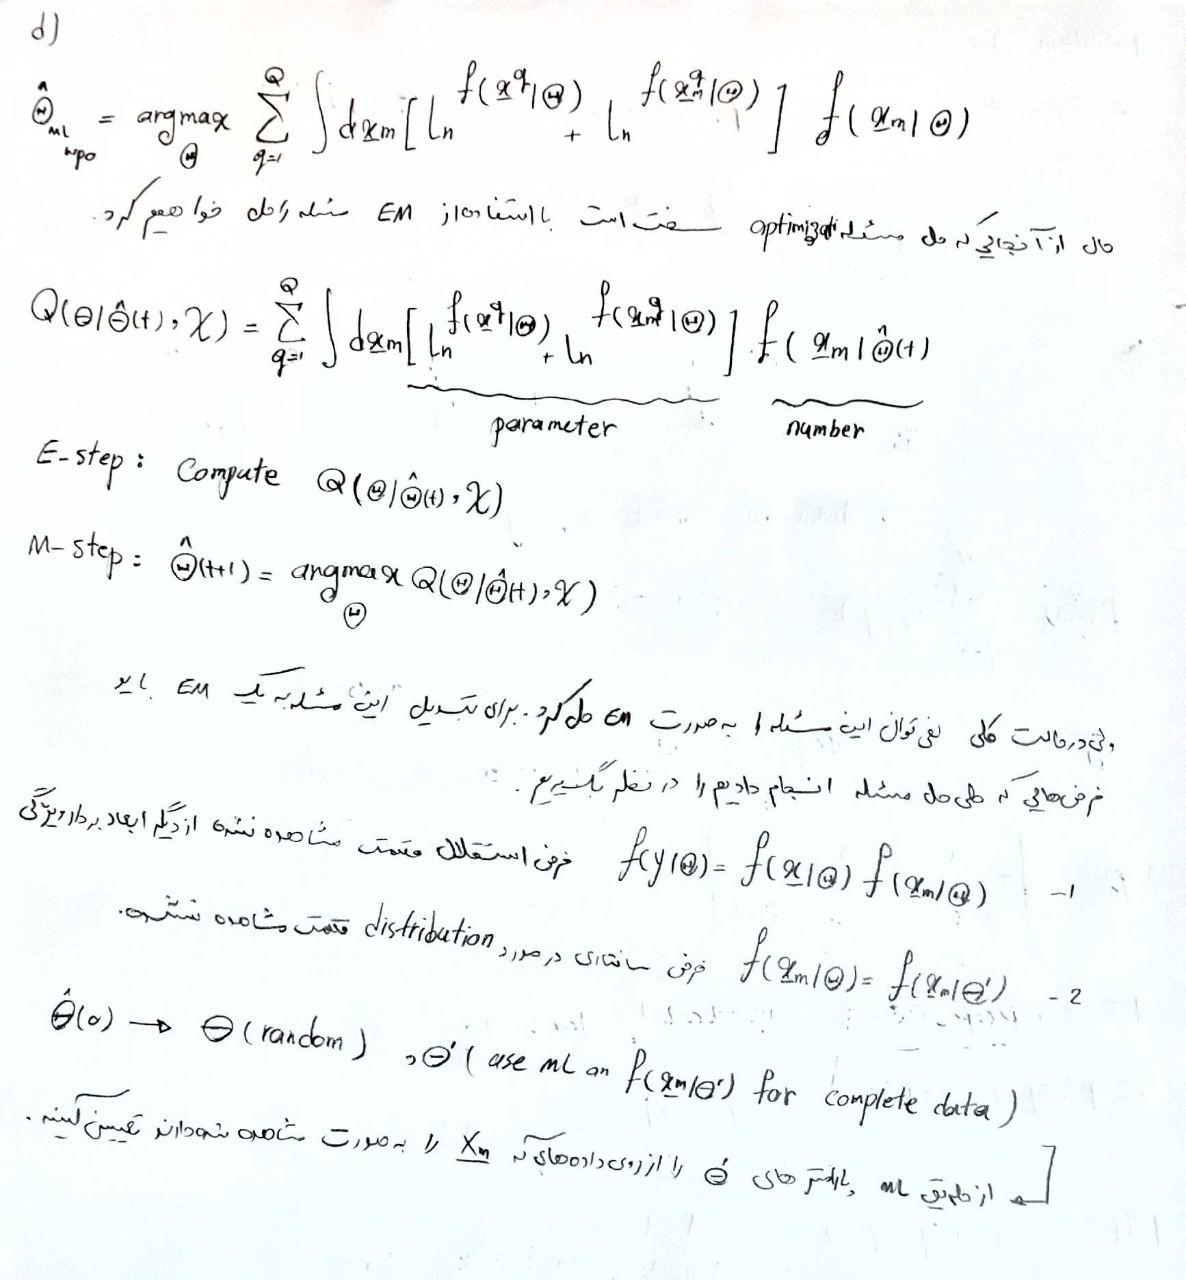 d)
Θ̂_ML_mpo = argmax_Θ Σ_{q=1}^{Q} ∫ dx_m [ ln f(x^q|Θ) + ln f(x_m^q|Θ) ] f(x_m|Θ)
حال از آنجایی که حل مسئله optimization سخت است با استفاده از EM مسئله را حل خواهیم کرد.
Q(Θ|Θ̂(t), X) = Σ_{q=1}^{Q} ∫ dx_m [ ln f(x^q|Θ) + ln f(x_m^q|Θ) ] f(x_m|Θ̂(t)
parameter number
E-step: Compute Q(Θ|Θ̂(t), X)
M-step: Θ̂(t+1) = argmax_Θ Q(Θ|Θ̂(t), X)
ولی در حالت کلی نمی توان این مسئله را به صورت EM حل کرد. برای تبدیل "این" مسئله به یک EM باید
فرض هایی که طی حل مسئله انجام دادیم را در نظر بگیریم:
1- f(y|Θ) = f(x|Θ) f(x_m|Θ) فرض استقلال قسمت مشاهده نشده از دیگر ابعاد بردار ویژگی
2- f(x_m|Θ) = f(x_m|Θ') فرض ساختاری در مورد distribution قسمت مشاهده نشده.
Θ̂(0) → Θ (random), Θ' (use ML on f(x_m|Θ') for complete data)
از طریق ML پارامتر های Θ' را از روی داده های که X_m را به صورت مشاهده شده دارند تعیین کنیم.